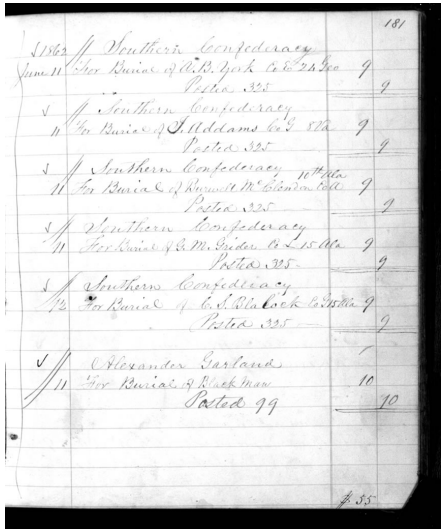 181
1862 // Southern Confederacy
June 11 For Burial of A. B. York Co E 24 Geo 9
Posted 325 9
// Southern Confederacy
11 For Burial of J. Addams Co G 8 Va 9
Posted 325 9
// Southern Confederacy
11 For Burial of Burwell McClendon Co A 10th Ala 9
Posted 325 9
// Southern Confederacy
11 For Burial of G. M. Grider Co L 15 Ala 9
Posted 325 9
// Southern Confederacy
12 For Burial of C. S. Blalock Co G 15 Ala 9
Posted 325 9
// Alexander Garland
11 For Burial of Black Man 10
Posted 99 10
$ 55